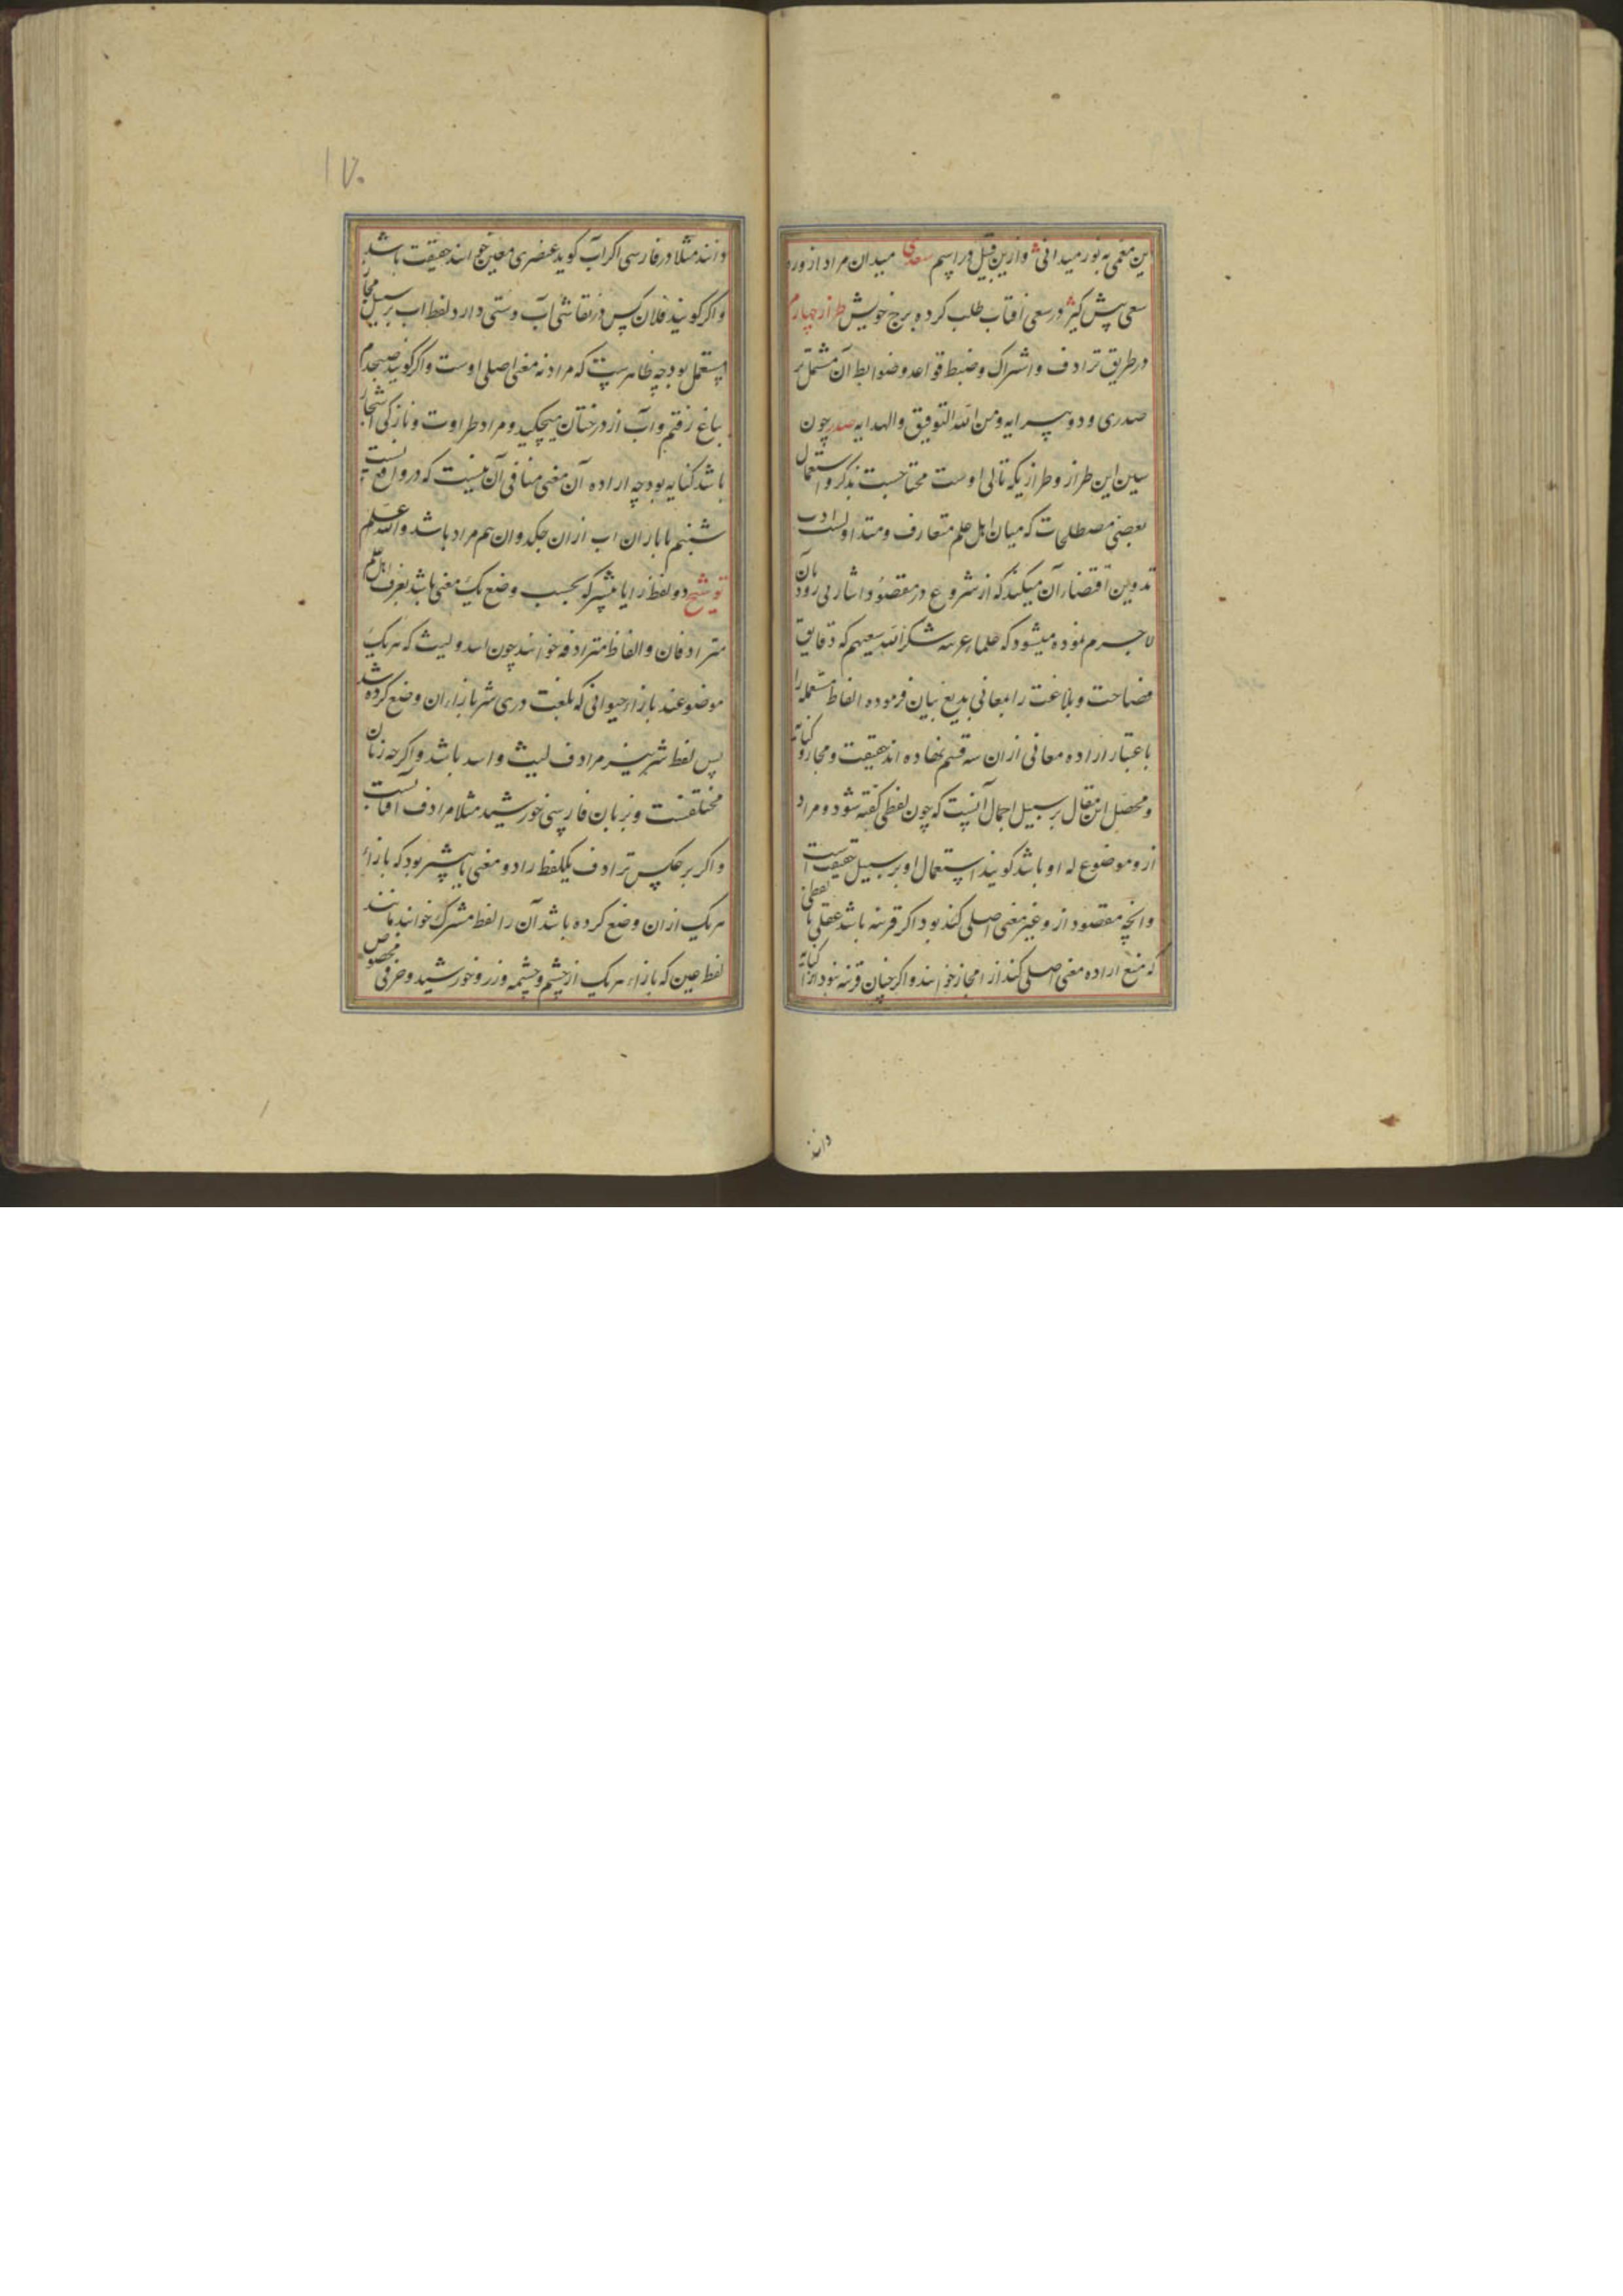 این معمی به نور میدانی و ازین قبیل در اسم سعدی میدان مراد از ورد
سعی پیش کیر در سعی افتاب طلب کرده برج خویش طراز چهارم
در طریق ترادف و اشتراک و ضبط قواعد و ضوابط آن مشتمل بر
صدری و دو پیرایه و من الله التوفیق و الهدایه صدر چون
این طراز و طرازیکه تالی اوست محتاجست بذکر و استعمال
بعضی مصطلحات که میان اهل علم متعارف و متداولست و ادب
تدوین اقتضاء آن میکند که از شروع در مقصود اشارتی رود بآن
لاجرم نموده میشود که علماء عربیه شکر الله سعیهم که دقایق
فصاحت و بلاغت را بمعانی بدیع بیان فرموده الفاظ مستعمله را
باعتبار اراده معانی ازان سه قسم نهاده اند حقیقت و مجاز و کنایه
و محصل این مقال بر سبیل اجمال آنست که چون لفظی گفته شود و مراد
ازو موضوع له او باشد گویند استعمال او بر سبیل حقیقت است
و انچه مقصود ازو غیر معنی اصلی کند بود اکر قرینه باشد عقلی یا لفظی
که منع اراده معنی اصلی کند انرا مجاز خوانند و اکر چنان قرینه نبود انرا کنایه
دانند
۱۷۰
دانند مثلا در فارسی اکر آب کوید عنصری معین خوانند حقیقت باشد
و اکر کویند فلان کس در نقاشی آب دستی دارد لفظ اب بر سبیل مجاز
مستعمل بود چه ظاهرست که مراد نه معنی اصلی اوست و اکر کویند صبحدم
بباغ رفتم و آب از درختان میچکید و مراد طراوت و نازکی اشجار
باشد کنایه بود چه اراده آن معنی منافی آن نیست که در واقع
شبنم یا باران اب ازان چکد و ان هم مراد باشد و الله اعلم
توشیح دو لفظ را یا بیشتر که بحسب وضع یک معنی باشد بعرف اهل علم
مترادفان و الفاظ مترادفه خوانند چون اسد و لیث که هر یک
موضوعند بازاء حیوانی که بلغت دری شیر بازاء ان وضع کرده شد
پس لفظ شیر نیز مرادف لیث و اسد باشد و اکرچه زبان
مختلفست و بزبان فارسی خورشید مثلا مرادف آفتابست
و اکر بر عکس ترادف یکلفظ را دو معنی یا بیشتر بود که بازاء
هر یک ازان وضع کرده باشد آن را لفظ مشترک خوانند مانند
لفظ عین که بازاء هر یک از چشم و چشمه و زر و خورشید و حرفی مخصوص